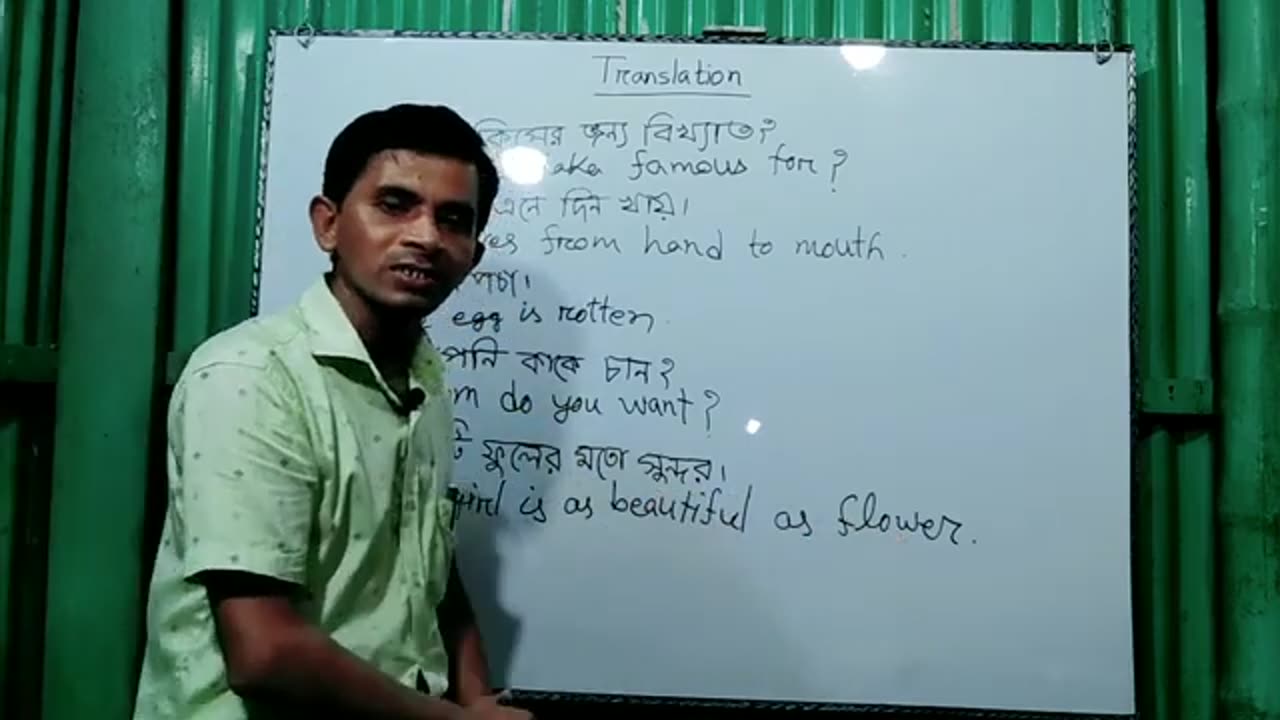 Translation
কিসের জন্য বিখ্যাত?
aka famous for?
এনে দিন খায়।
es from hand to mouth.
পচা।
egg is rotten.
পনি কাকে চান?
m do you want?
টি ফুলের মতো সুন্দর।
girl is as beautiful as flower.